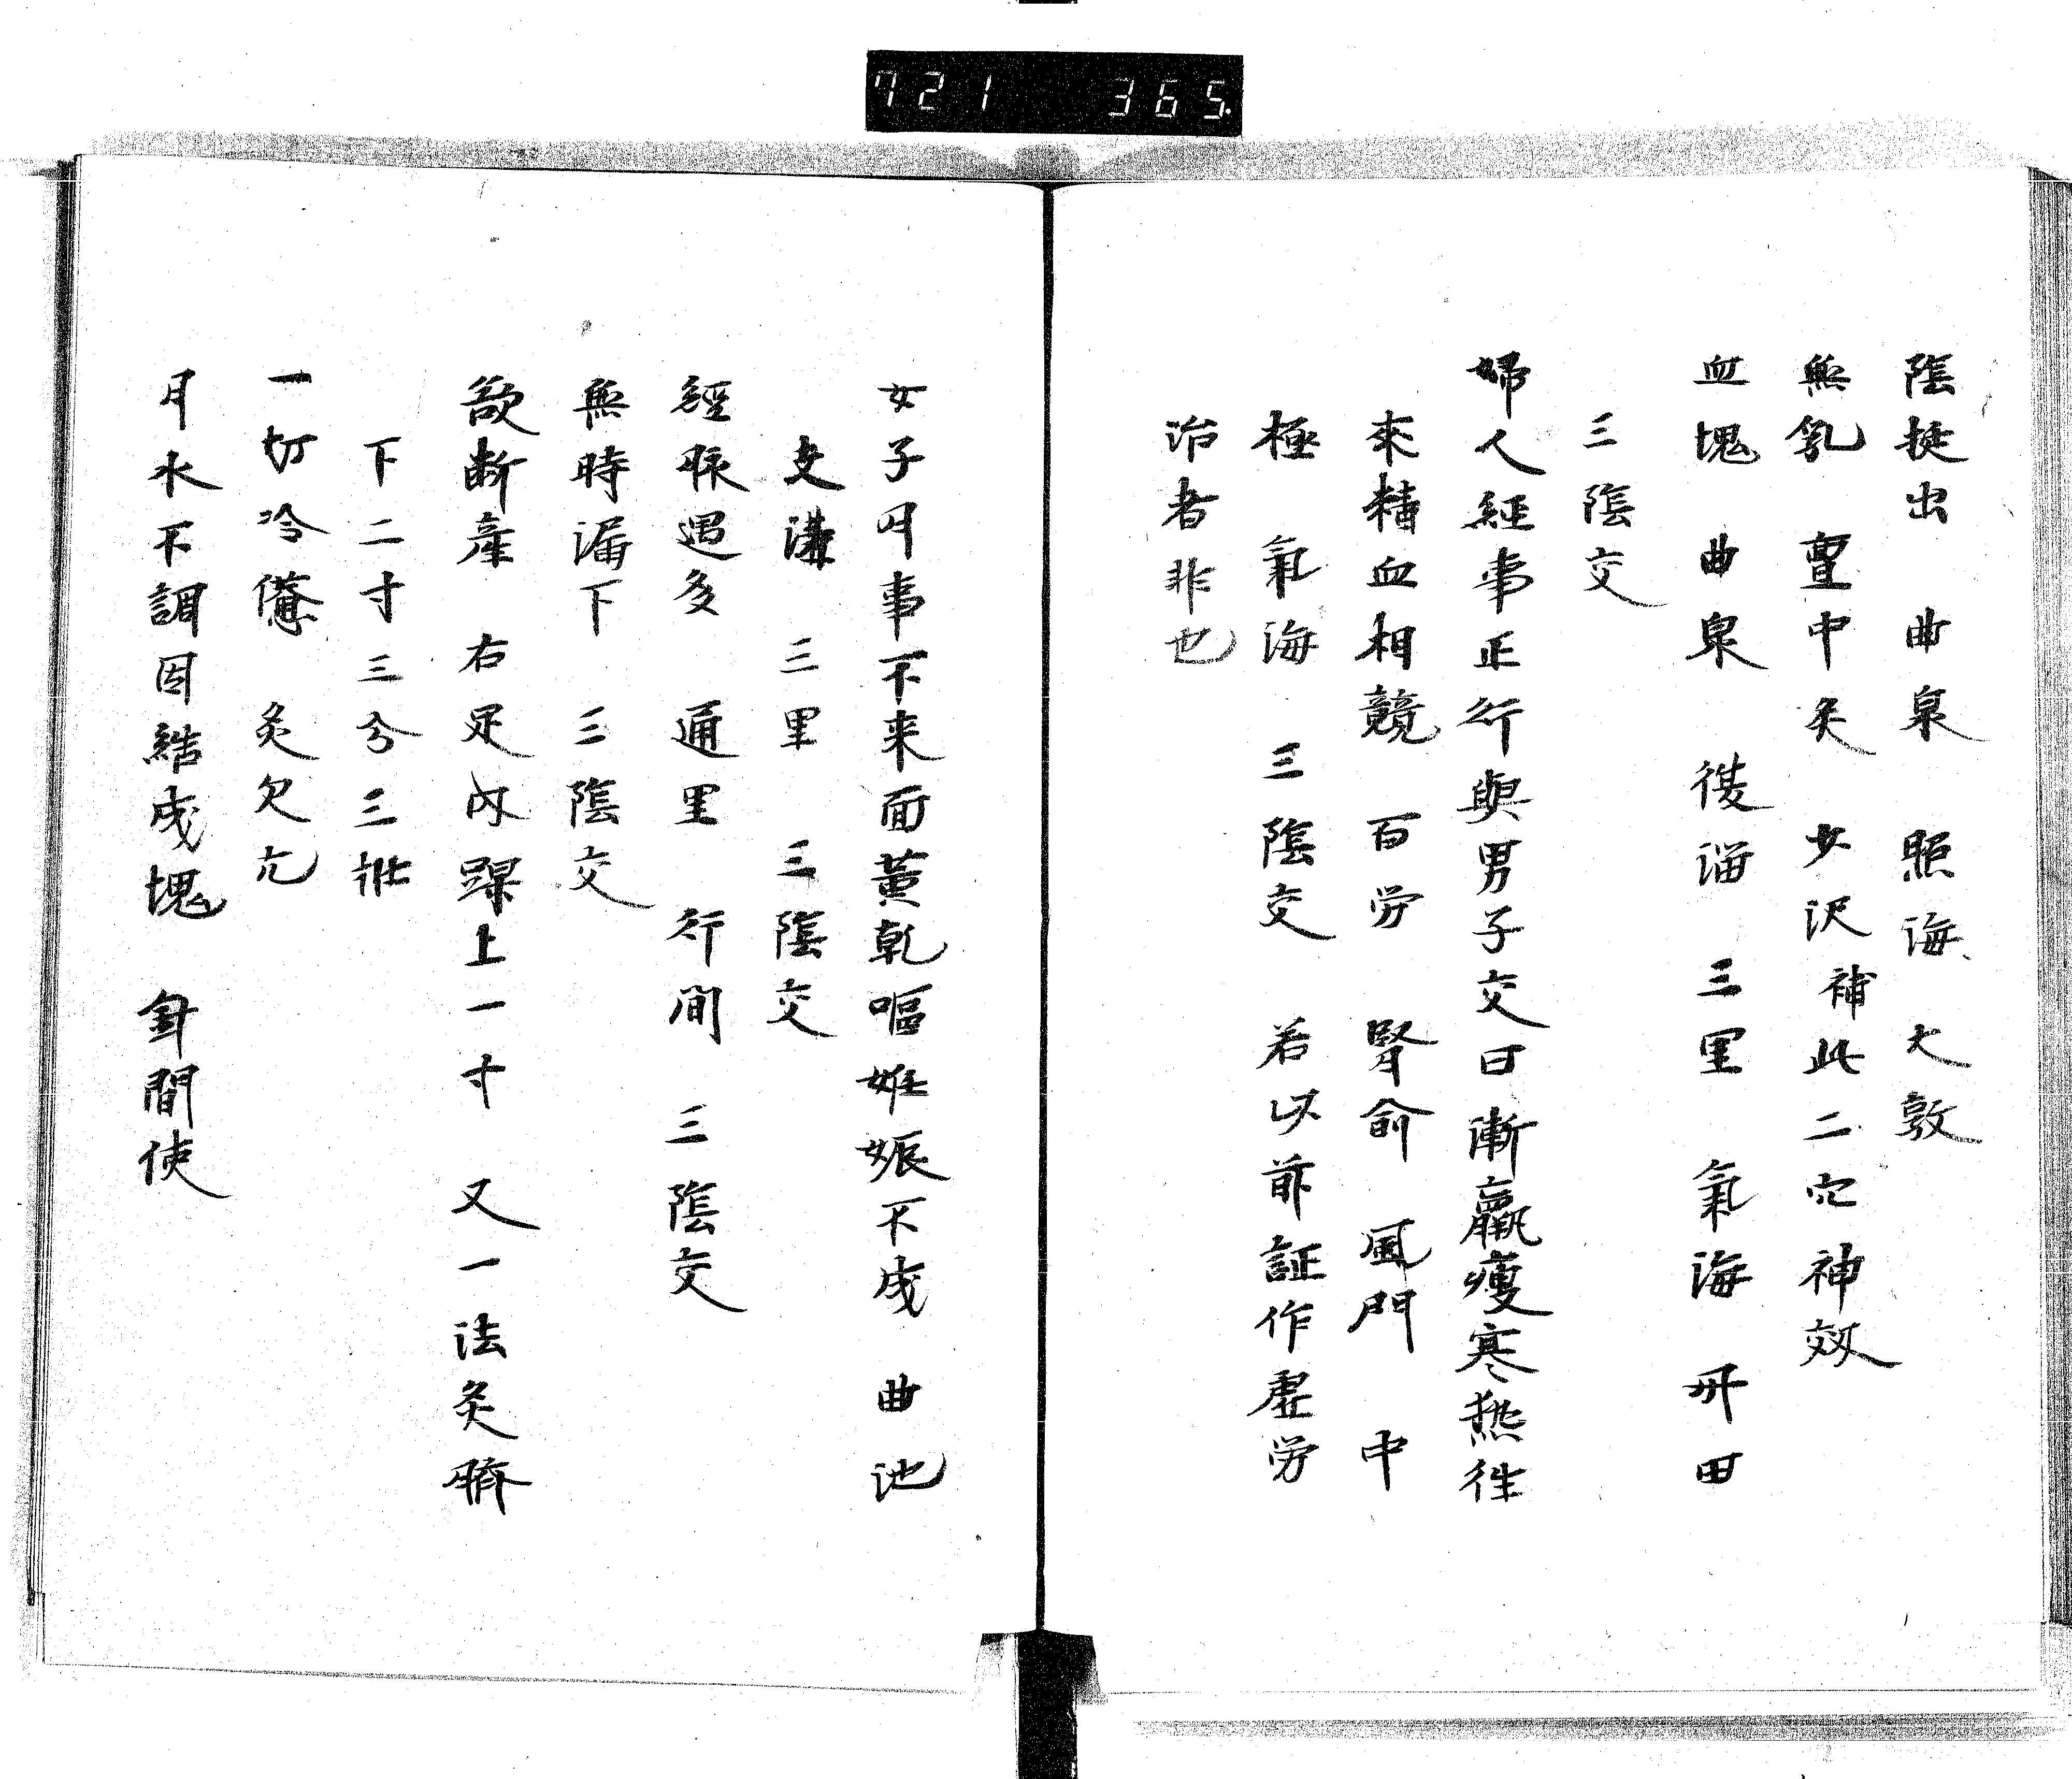 721 365.
陰挺出 曲泉 照海 大敦
無乳 亶中灸 少沢補此二穴神效
血塊 曲泉 復溜 三里 氣海 丹田
三陰交
婦人經事正行與男子交日漸羸瘦寒熱徃
來精血相競 百労 腎俞 風門 中
極 氣海 三陰交 若以前証作虛労
治者非也
女子月事不来面黃乾嘔妊娠不成 曲池
支溝 三里 三陰交
經脈過多 通里 行間 三陰交
無時漏下 三陰交
欲断產 右足內踝上一寸 又一法灸臍
下二寸三分三壯
一切冷憊 灸欠元
月水不調因結成塊 針間使